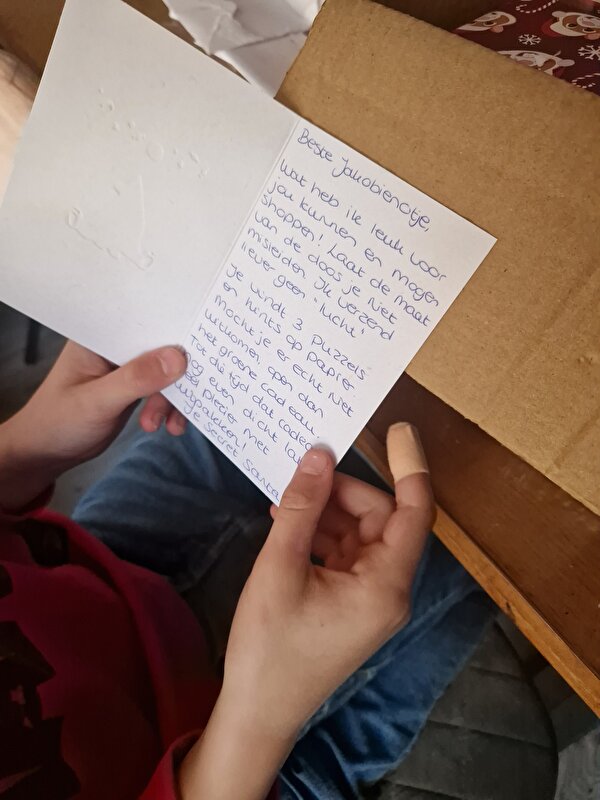 Beste Jakobienotje,
wat heb ik leuk voor
jou kunnen en mogen
shoppen! Laat de maat
van de doos je niet
misleiden. Ik verzend
liever geen "lucht"
Je vindt 3 puzzels
en hints op papier
mocht je er echt niet
uitkomen, open dan
het groene cadeau.
Tot die tijd dat cadeau
nog even dicht
plezier met
uitpakken!
je secret santa